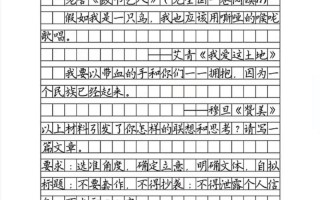 假如我是一只鸟，我也应该用嘶哑的喉咙
歌唱。
——艾青《我爱这土地》
我要以带血的手和你们一一拥抱，因为一
个民族已经起来。
——穆旦《赞美》
以上材料引发了你怎样的联想和思考？请写一
篇文章。
要求：选准角度，确定立意，明确文体，自拟
标题；不要套作，不得抄袭；不得泄露个人信